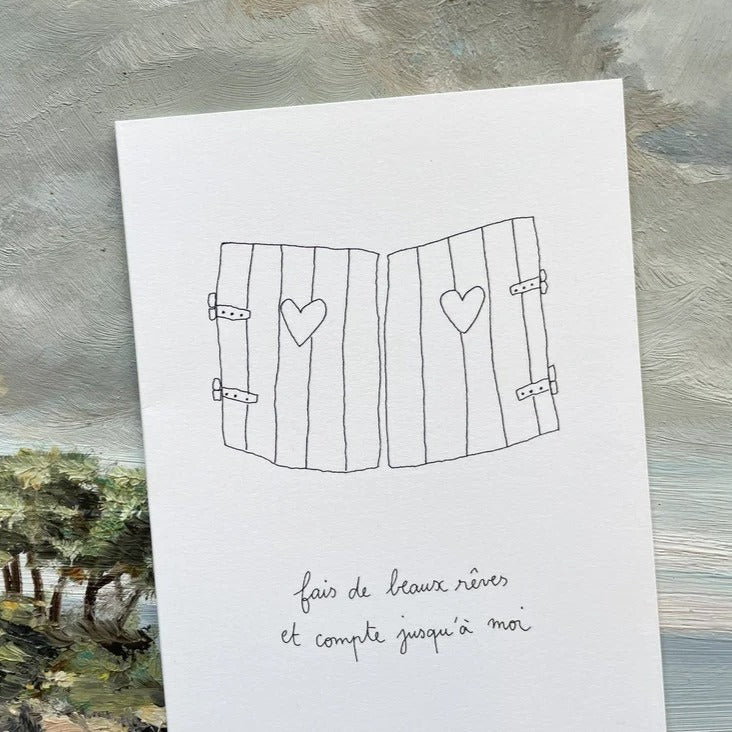 fais de beaux rêves
et compte jusqu'à moi